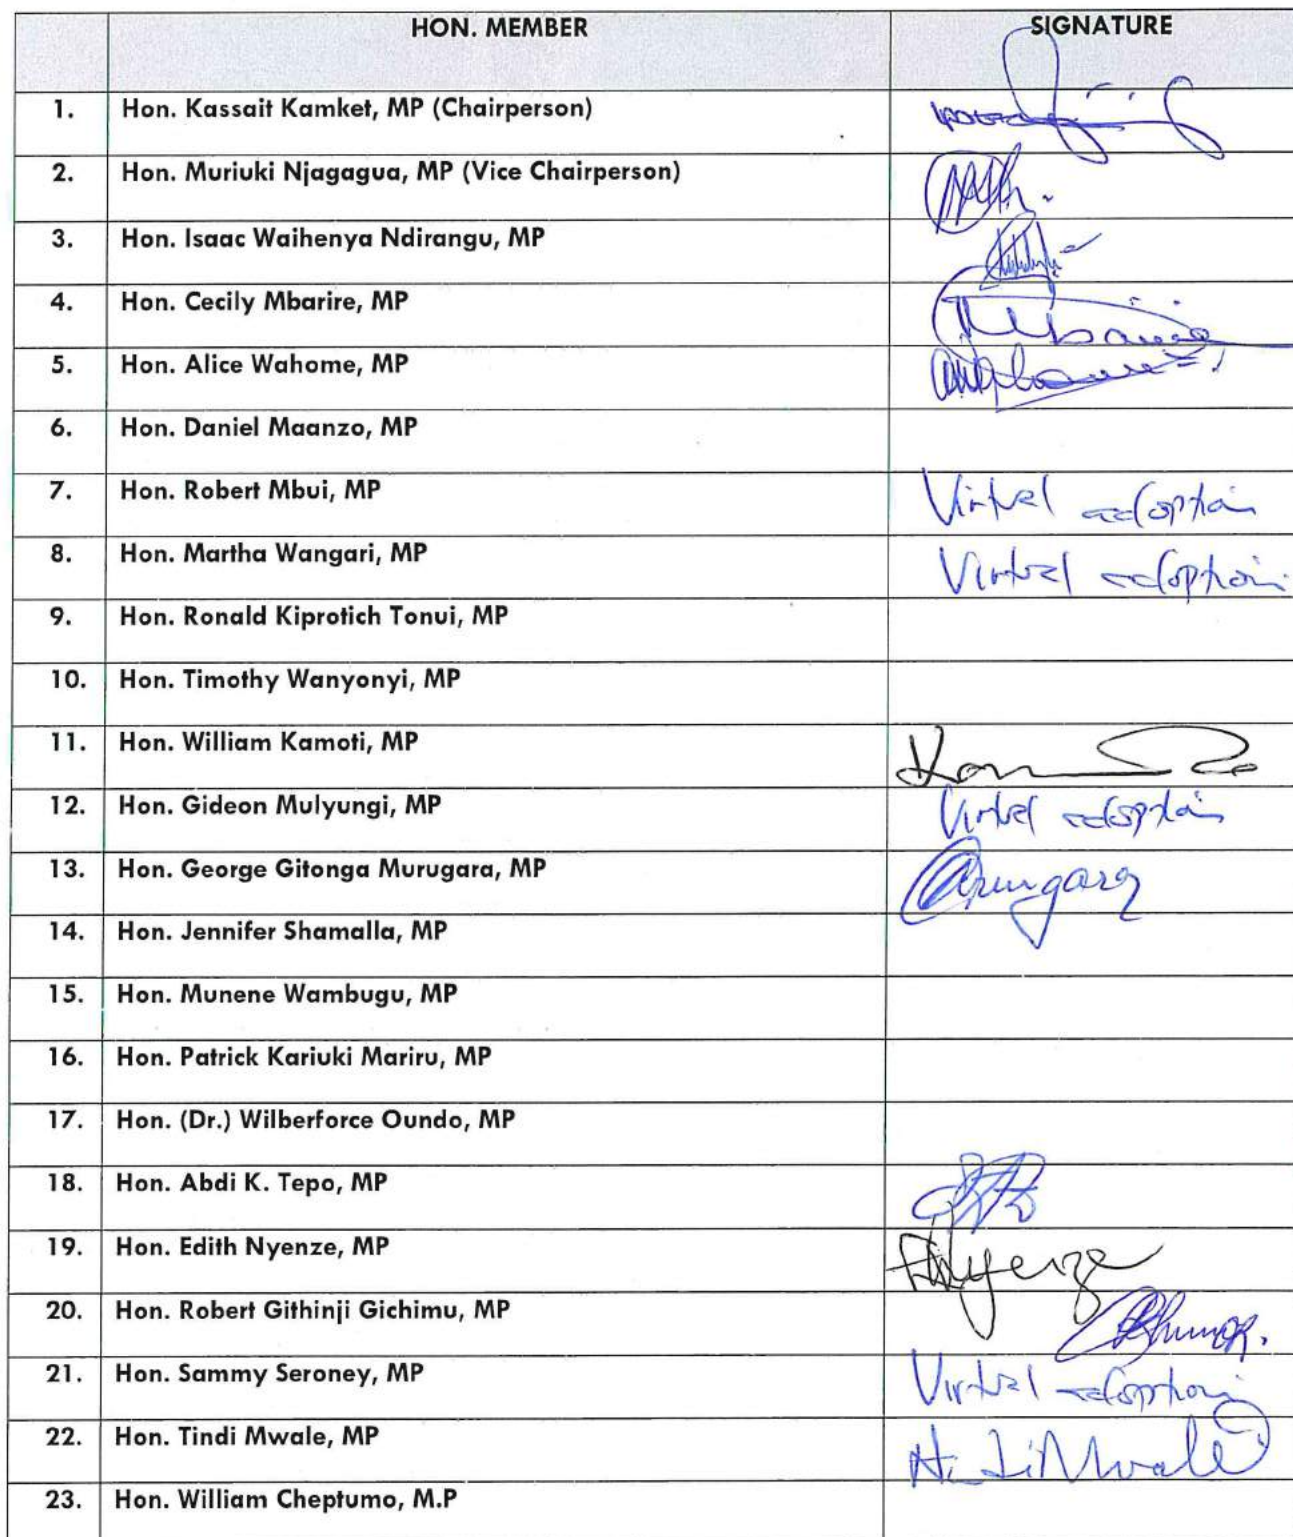 HON. MEMBER SIGNATURE
1. Hon. Kassait Kamket, MP (Chairperson)
2. Hon. Muriuki Njagagua, MP (Vice Chairperson)
3. Hon. Isaac Waihenya Ndirangu, MP
4. Hon. Cecily Mbarire, MP
5. Hon. Alice Wahome, MP
6. Hon. Daniel Maanzo, MP
7. Hon. Robert Mbui, MP Virtual adoption
8. Hon. Martha Wangari, MP Virtual adoption
9. Hon. Ronald Kiprotich Tonui, MP
10. Hon. Timothy Wanyonyi, MP
11. Hon. William Kamoti, MP
12. Hon. Gideon Mulyungi, MP Virtual adoption
13. Hon. George Gitonga Murugara, MP
14. Hon. Jennifer Shamalla, MP
15. Hon. Munene Wambugu, MP
16. Hon. Patrick Kariuki Mariru, MP
17. Hon. (Dr.) Wilberforce Oundo, MP
18. Hon. Abdi K. Tepo, MP
19. Hon. Edith Nyenze, MP
20. Hon. Robert Githinji Gichimu, MP
21. Hon. Sammy Seroney, MP Virtual adoption
22. Hon. Tindi Mwale, MP
23. Hon. William Cheptumo, M.P